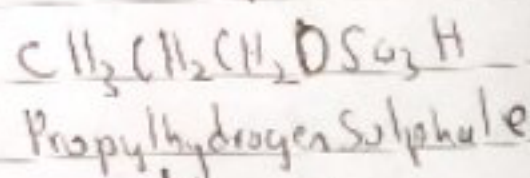 CH₃CH₂CH₂OSO₃H
Propylhydrogen Sulphate